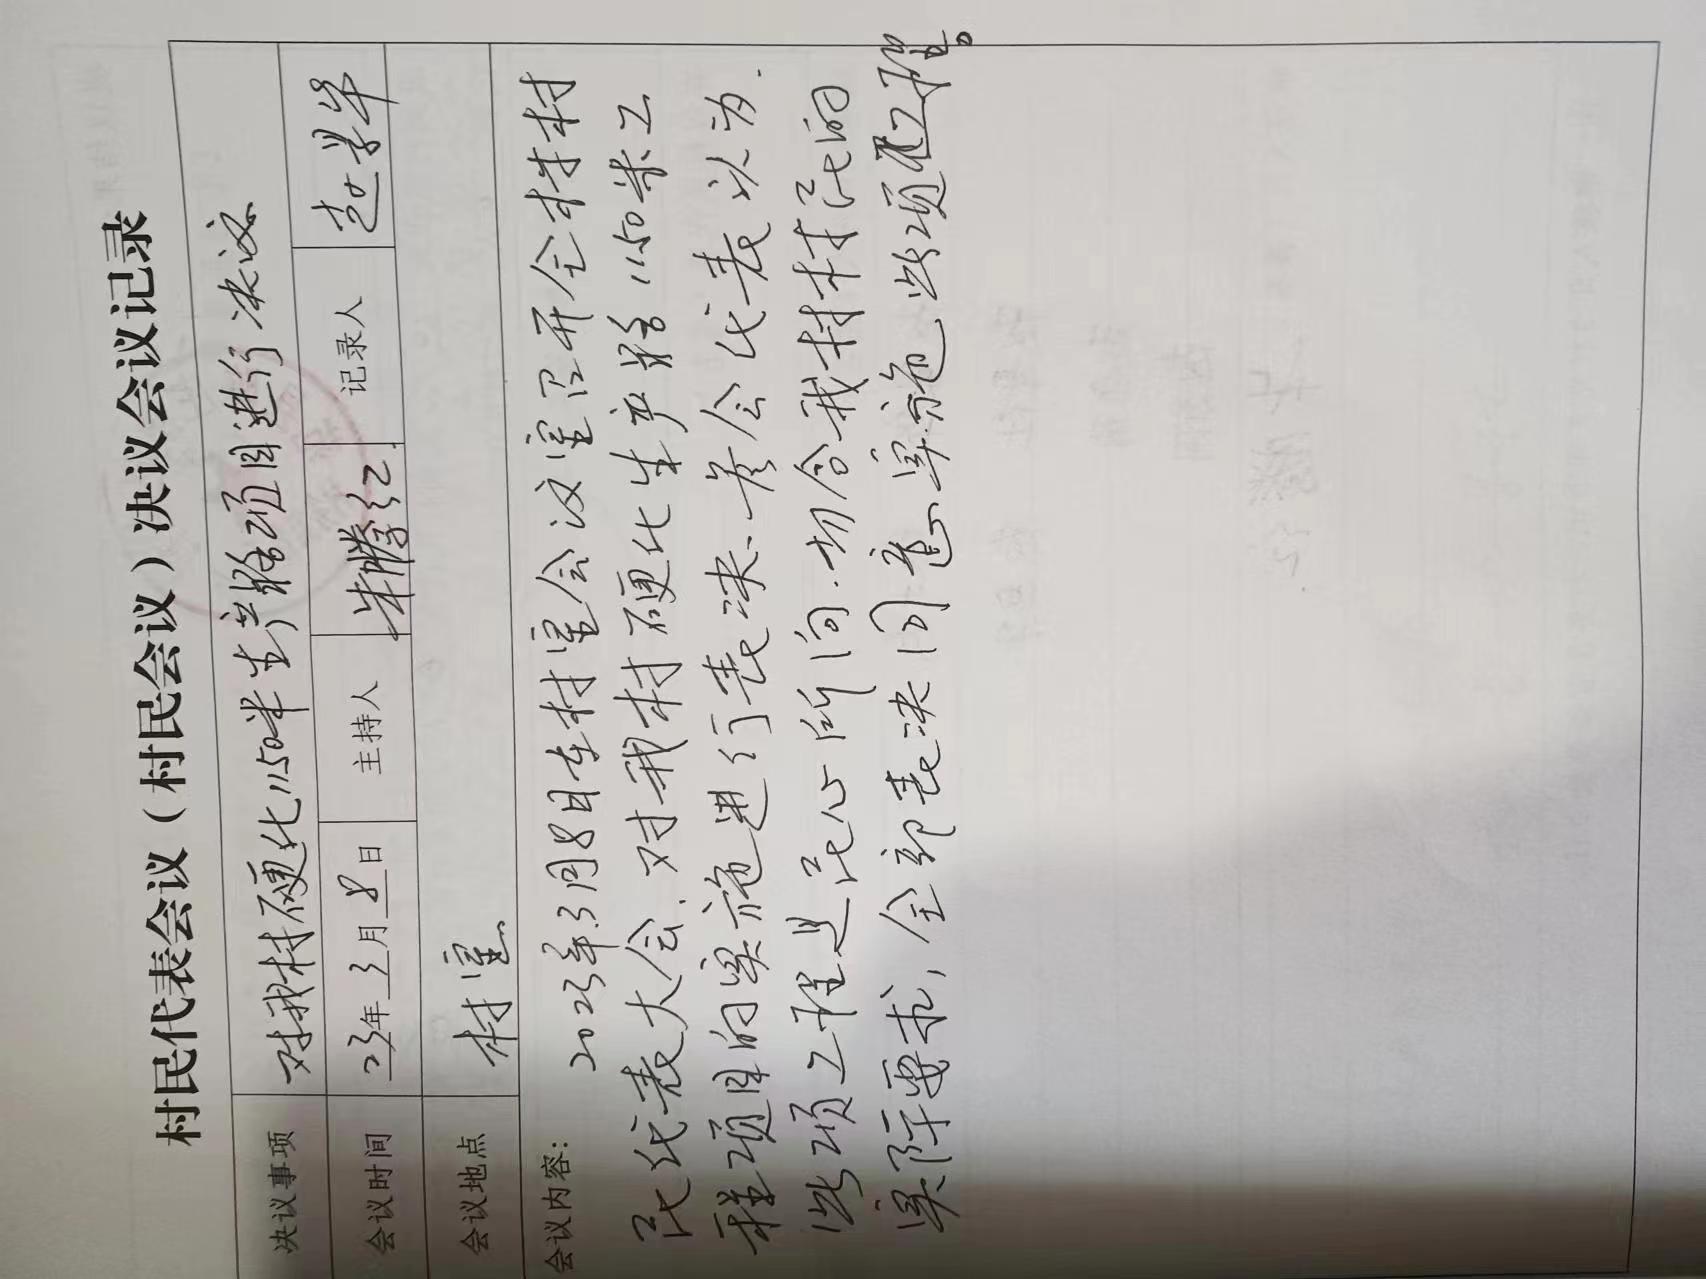 村民代表会议（村民会议）决议会议记录
决议事项 对我村硬化1150米生产路项目进行决议
会议时间 23年3月8日 主持人 朱腾红 记录人
会议地点 村室
会议内容：
2023年3月8日在村室会议室召开全体村
民代表大会.对我村硬化生产路1150米工
程项目的实施进行表决.参会代表认为.
此项工程是民心所向.切合我村村民的
实际要求，全部表决同意实施此项工程。